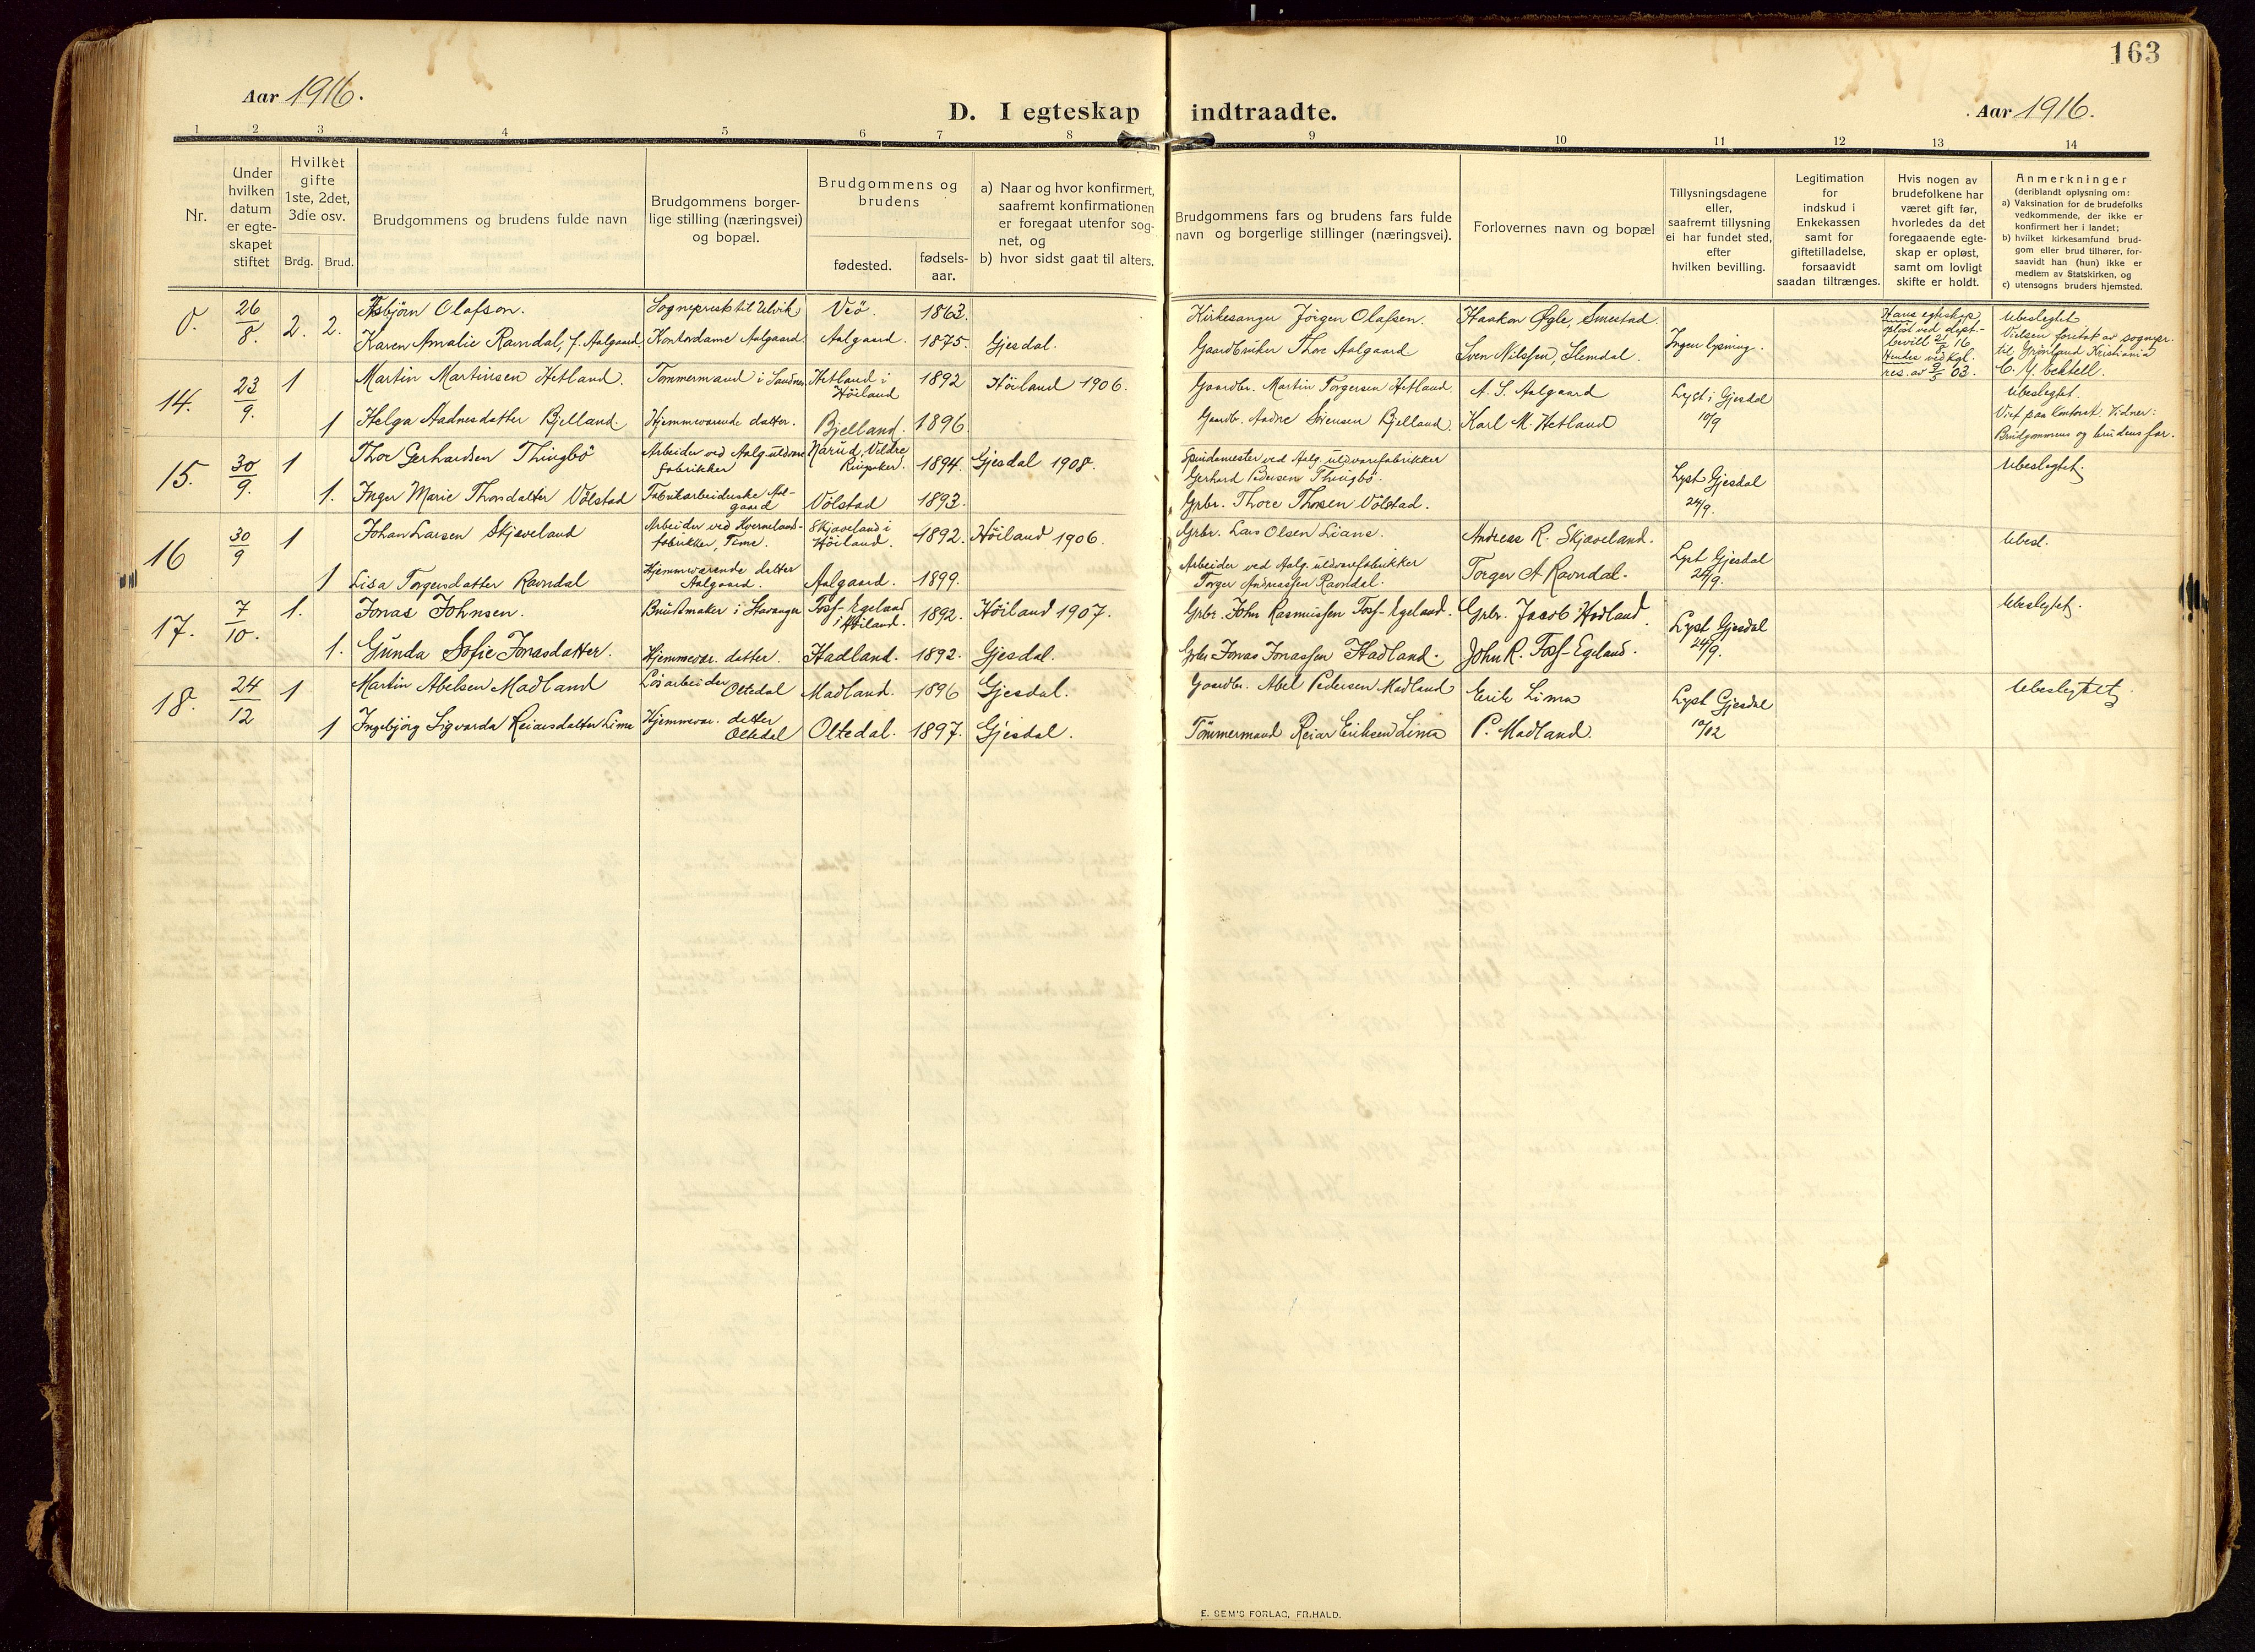 163
Aar 1916.
D. I egteskap indtraadte.
Aar 1916.
1 2 3 4 5 6 7 8 9 10 11 12 13 14
Nr.
Under hvilken datum er egte-skapet stiftet
Hvilket gifte 1ste, 2det, 3die osv.
Brdg. Brud.
Brudgommens og brudens fulde navn
Brudgommens borger-lige stilling (næringsvei) og bopæl.
Brudgommens og brudens
fødested.
fødsels-aar.
a) Naar og hvor konfirmert, saafremt konfirmationen er foregaat utenfor sog-net, og
b) hvor sidst gaat til alters.
Brudgommens fars og brudens fars fulde navn og borgerlige stillinger (næringsvei).
Forlovernes navn og bopæl
Tillysningsdagene eller, saafremt tillysning ei har fundet sted, efter hvilken bevilling.
Legitimation for indskud i Enkekassen samt for giftetilladelse, forsaavidt saadan tiltrænges.
Hvis nogen av brudefolkene har været gift før, hvorledes da det foregaaende egte-skap er opløst, samt om lovligt skifte er holdt.
Anmerkninger
(deriblandt oplysning om:
a) Vaksination for de brudefolks vedkommende, der ikke er konfirmert her i landet;
b) hvilket kirkesamfund brud-gom eller brud tilhører, for-saavidt han (hun) ikke er medlem av Statskirken, og
c) utensogns bruders hjemsted.
0. 26/8. 2. 2.
Asbjörn Olafson. Sogneprest til Ulvik Veö. 1863. Kirkesanger Jörgen Olafsen. Haakon Øgle, Smestad.
Karen Amalie Ravndal, f. Aalgaard. Kontordame Aalgaard. Aalgaard. 1875. Gjesdal. Gaardbruker Thore Aalgaard Sven Nilssen, Slemdal. Ingen lysning.
Hans egteskap opløst ved dept-bevill 2/8 16 Hendes ved kgl. res. av 9/5 03.
Ubeslegtet Vielsen foretat av sognepr. til Grønland Kristiania
14. 23/9. 1 Martin Martinsen Hetland. Tömmermand i Sandnes Hetland i Höiland 1892 Höiland 1906. Gaardbr. Martin Torgersen Hetland. A. S. Aalgaard Lyst i Gjesdal 10/9 Ubeslegtet.
1 Helga Aadnesdatter Bjelland. Hjemmeværende datter. Bjelland. 1896. Gaardb. Aadne Sörensen Bjelland. Karl M. Hetland Viet paa kontoret. Vidner: Brudgommens og brudens far.
15. 30/9. 1 Thor Gerhardsen Thingbö Arbeider ved Aalg. uldvarefabrikker 1894. Gjesdal 1908. Spindemester ved Aalg. uldvarefabrikker Gerhard Pedersen Thingbö. Lyst Gjesdal 24/9. Ubeslegtet.
1. Inger Marie Thorsdatter Völstad Fabrikarbeiderske Aal-gaard Völstad 1893. Grbr. Thore Thorsen Völstad.
16 30/9 1 Johan Larsen Skjæveland Arbeider ved Kvernelands-fabrikker, Time. Skjæveland i Höiland. 1892. Höiland 1906. Grbr. Lars Olsen Liane. Andreas R. Skjæveland. Lyst Gjesdal 24/9. Ubesl.
1 Lisa Torgersdatter Ravndal Hjemmeværende datter Aalgaard. Aalgaard. 1899. Arbeider ved Aalg. uldvarefabrikker Torger Andreassen Ravndal. Torger A Ravndal.
17. 7/10. 1. Jonas Johnsen. Buntmaker i Stavanger Foss-Egeland i Höiland. 1892. Höiland 1907. Grbr. John Rasmussen Foss-Egeland. Grbr. Jacob Hadland. Lyst Gjesdal 24/9. Ubeslegtet.
1. Gunda Sofie Jonasdatter. Hjemmevær. datter. Hadland. 1892. Gjesdal. Grbr Jonas Jonassen Hadland. John R. Foss-Egeland.
18. 24/12 1 Martin Abelsen Madland Lösarbeider Oltedal Madland. 1896 Gjesdal. Gaardbr. Abel Pedersen Madland Eirik Lima Lyst Gjesdal 10/12 Ubeslegtet
1 Ingebjörg Sigvarda Reiarsdatter Lima Hjemmevær. datter Oltedal Oltedal. 1897. Gjesdal. Tömmermand Reiar Eriksen Lima P. Madland.
E. SEM'S FORLAG, FR.HALD.